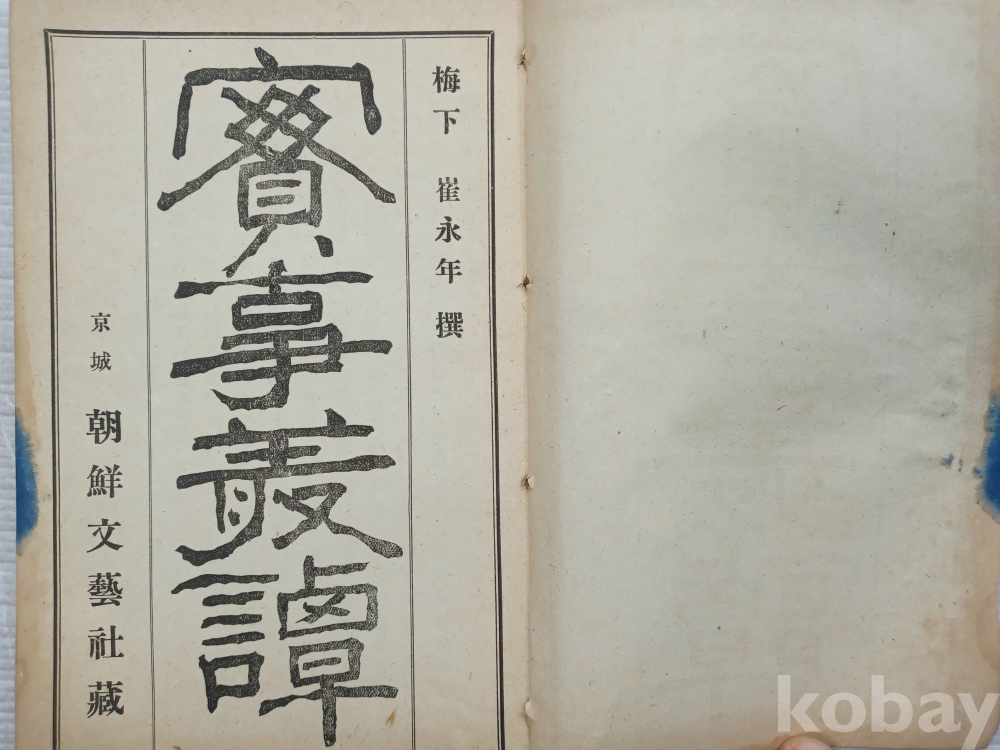 梅下 崔永年 撰
實事叢譚
京城 朝鮮文藝社藏
kobay